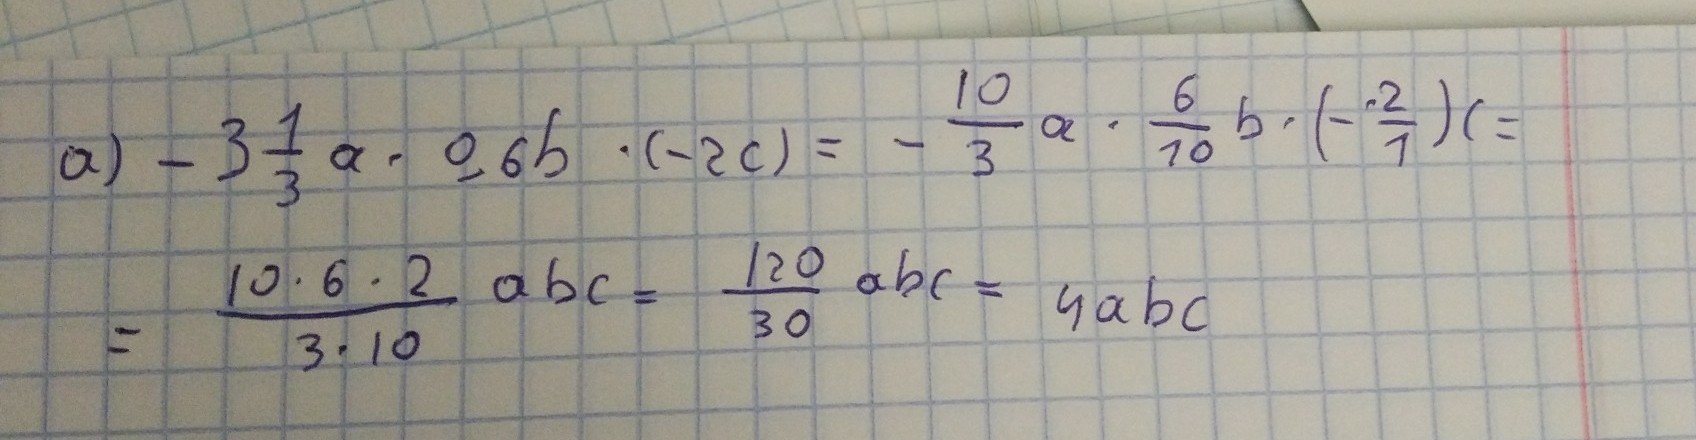 а) - 3 1/3 a · 0,6b · (-2c) = - 10/3 a · 6/10 b · (- 2/1) c =
= 10·6·2/3·10 abc = 120/30 abc = 4abc